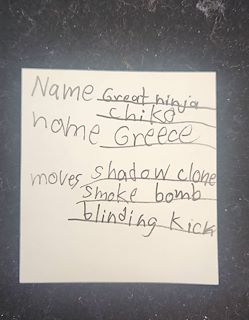 Name Great ninja
chiko
home Greece
moves shadow clone
smoke bomb
blinding kick